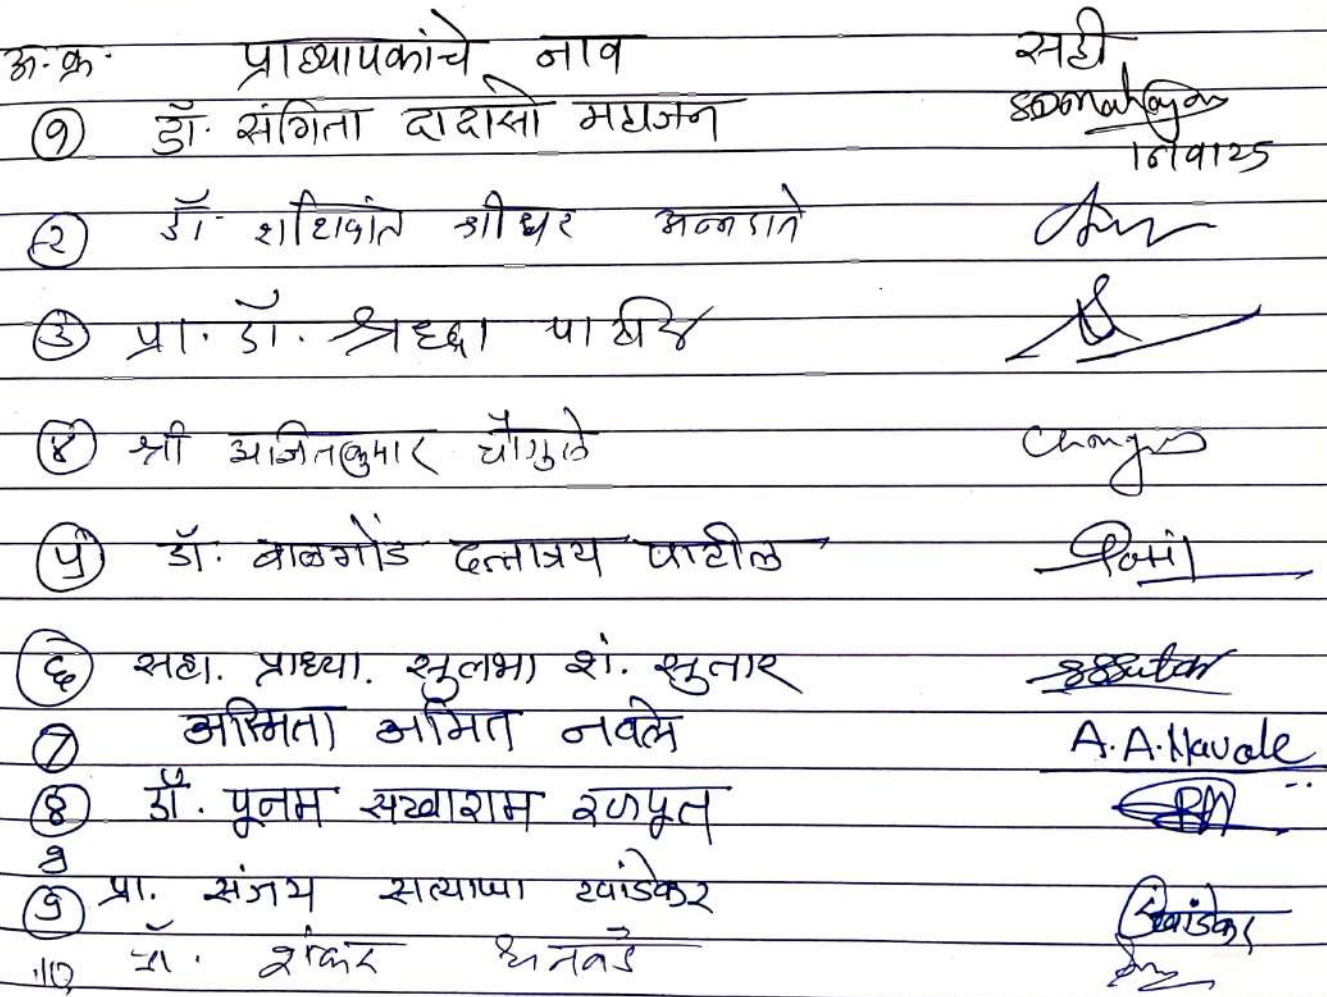 अ.क्र. प्राध्यापकांचे नाव सही
१ डॉ. संगिता दादासो महाजन SDMahajan
२ डॉ. शशिकांत श्रीधर अन्नदाते
३ प्रा. डॉ. श्रद्धा पाटील
४ श्री अजितकुमार चौगुले
५ डॉ. बाळगोंड दत्तात्रय पाटील Patil
६ सहा. प्राध्या. सुलभा शं. सुतार SSSutar
7 अस्मिता अमित नवले A.A.Navale
8 डॉ. पूनम सखाराम रजपूत
९ प्रा. संजय सत्याप्पा खांडेकर
10 डॉ. शंकर धनवडे